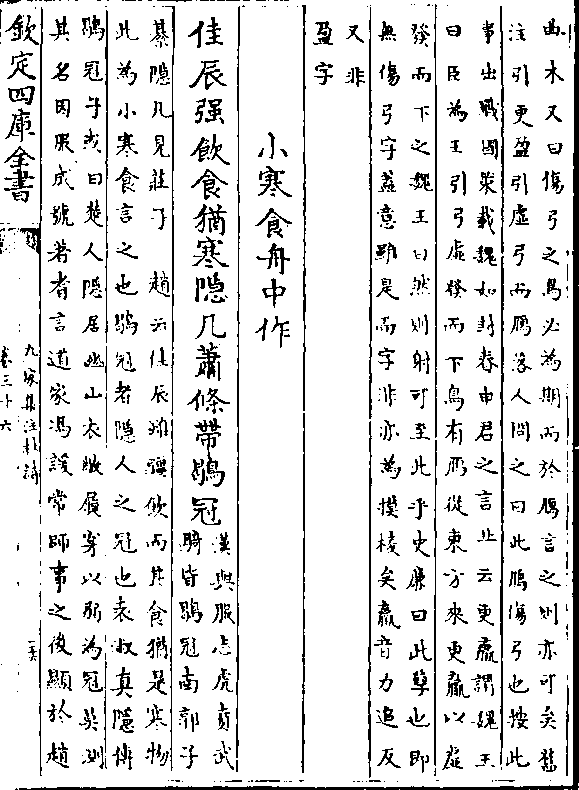 曲木又曰傷弓之鳥必為期而於鴈言之則亦可矣舊
注引更盈引虛弓而鴈落人問之曰此鴈傷弓也按此
事出戰國策載魏加對春申君之言止云更羸謂魏王
曰臣為王引弓虛發而下鳥有鴈從東方來更羸以虛
發而下之魏王曰然則射可至此乎史廉曰此孽也即
無傷弓字蓋意雖是而字非亦為摸稜矣羸音力追反
又非
盈字
小寒食舟中作
佳辰强飲食猶寒隠几蕭條帶鶡冠
漢輿服志虎賁武
騎皆鶡冠南郭子
綦隠几見莊子 趙云佳辰雖彊飲而其食猶是寒物
此為小寒食言之也鶡冠者隠人之冠也袁淑真隠傳
鶡冠子或曰楚人隠居幽山衣敝履穿以鶡為冠莫測
其名因服成號著書言道家馮諼常師事之後顯於趙
欽定四庫全書
九家集注杜詩
卷三十六